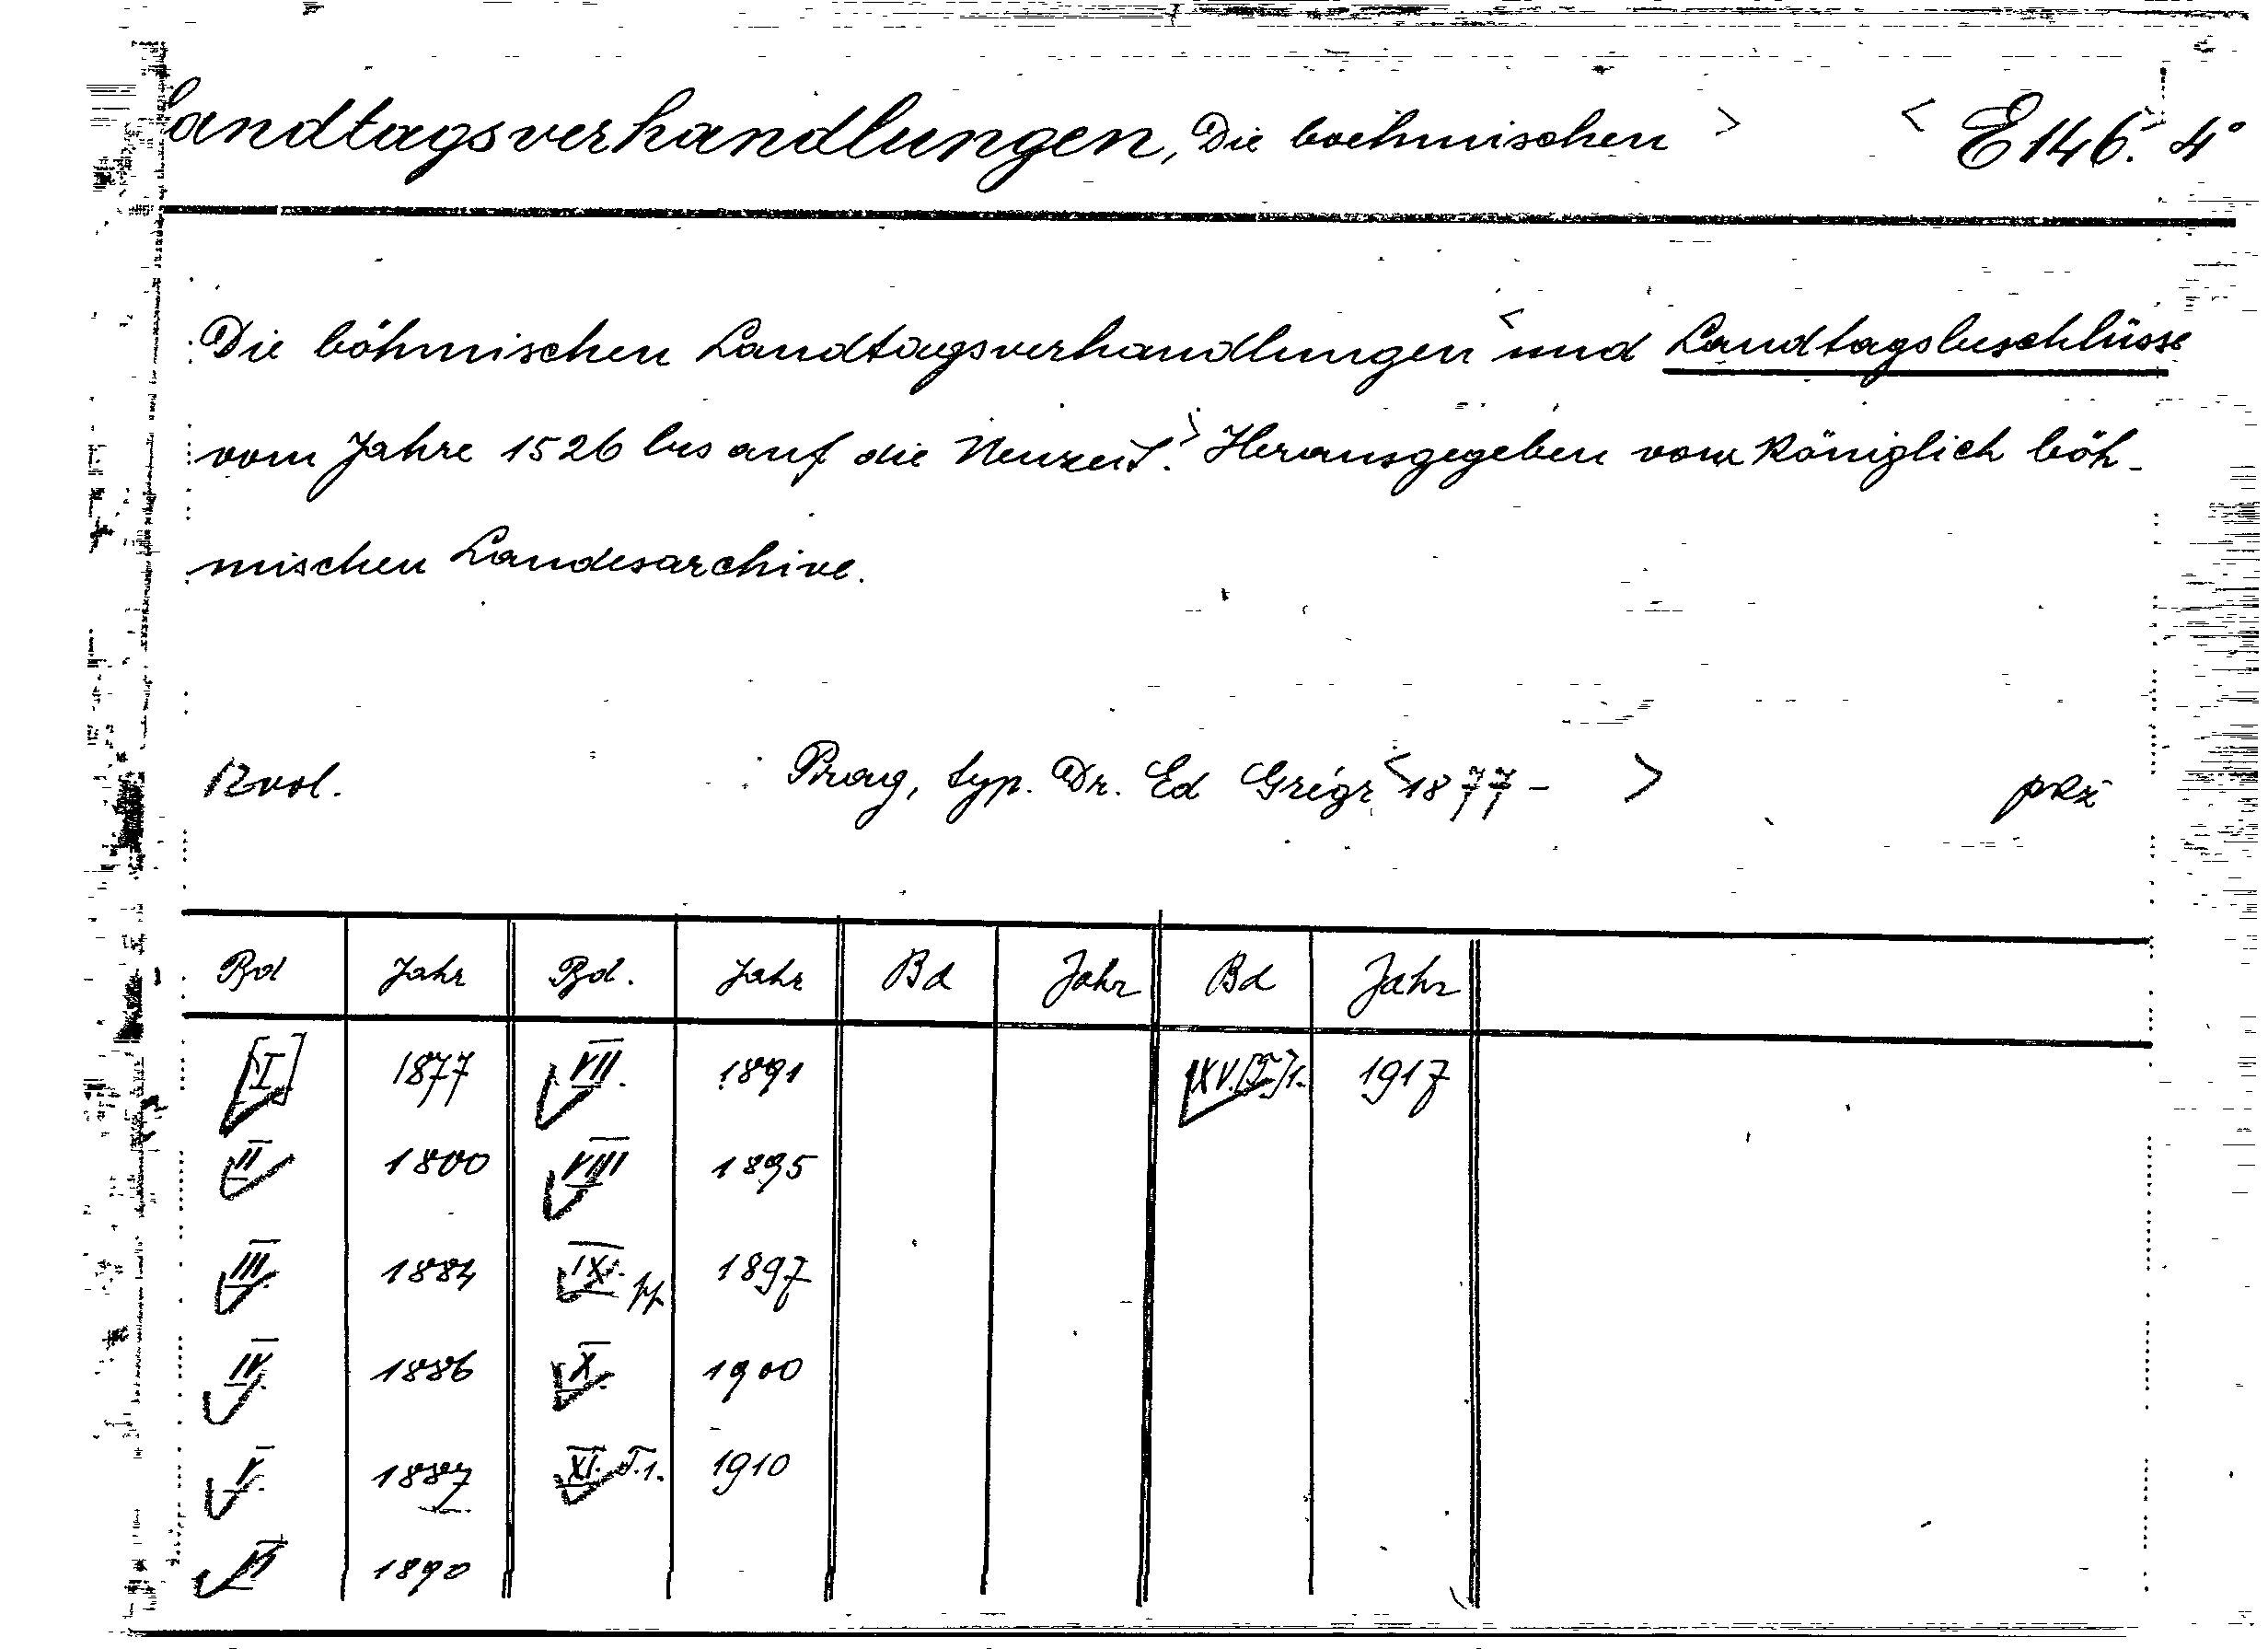 Landtagsverhandlungen, Die boehmischen > < E 146. 4°
Die böhmischen Landtagsverhandlungen < und Landtagsbeschlüsse
vom Jahre 1526 bis auf die Neuzeit. > Herausgegeben vom Königlich böh-
mischen Landesarchive.
12 vol. Prag, typ. Dr. Ed Grégr < 1877 - >
Bd Jahr Bd. Jahr Bd Jahr Bd Jahr
[I] 1877 VII. 1891 XV.[T.]1. 1917
II 1880 VIII 1895
III 1884 IX. 1897
IV. 1886 X. 1900
V. 1887 XI. T.1. 1910
VI 1890